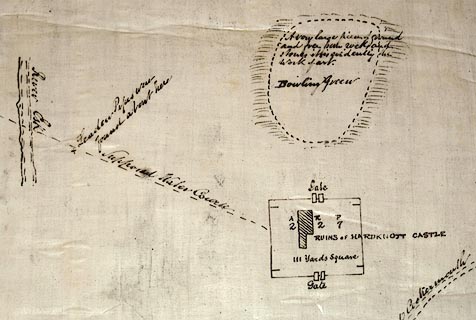 A very large piece of ground
and
stones it is evidently the
work of art.
Bowling Green
River Esk
Leaden Pipes were
found about here
Supposed Water Course
Gate
A R P
2 2 7
RUINS OF HARDKNOTT CASTLE
111 Yards Square
Gate
Cockermouth